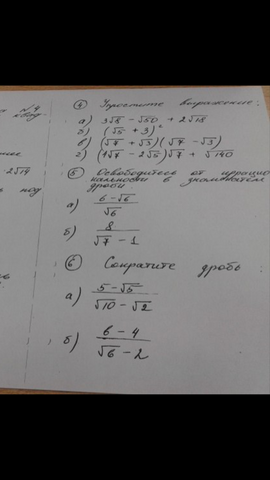 N 4
квад-
2√14
под
④ Упростите выражение:
а) 3√8 - √50 + 2√18
б) (√5 + 3)²
в) (√7 + √3)(√7 - √3)
г) (7√7 - 2√5)√7 + √140
⑤ Освободитесь от иррацио
нальности в знаменателе
дроби
а) (6-√6)/√6
б) 8/(√7 - 1)
⑥ Сократите дробь:
а) (5-√5)/(√10 - √2)
б) (6-4)/(√6-2)